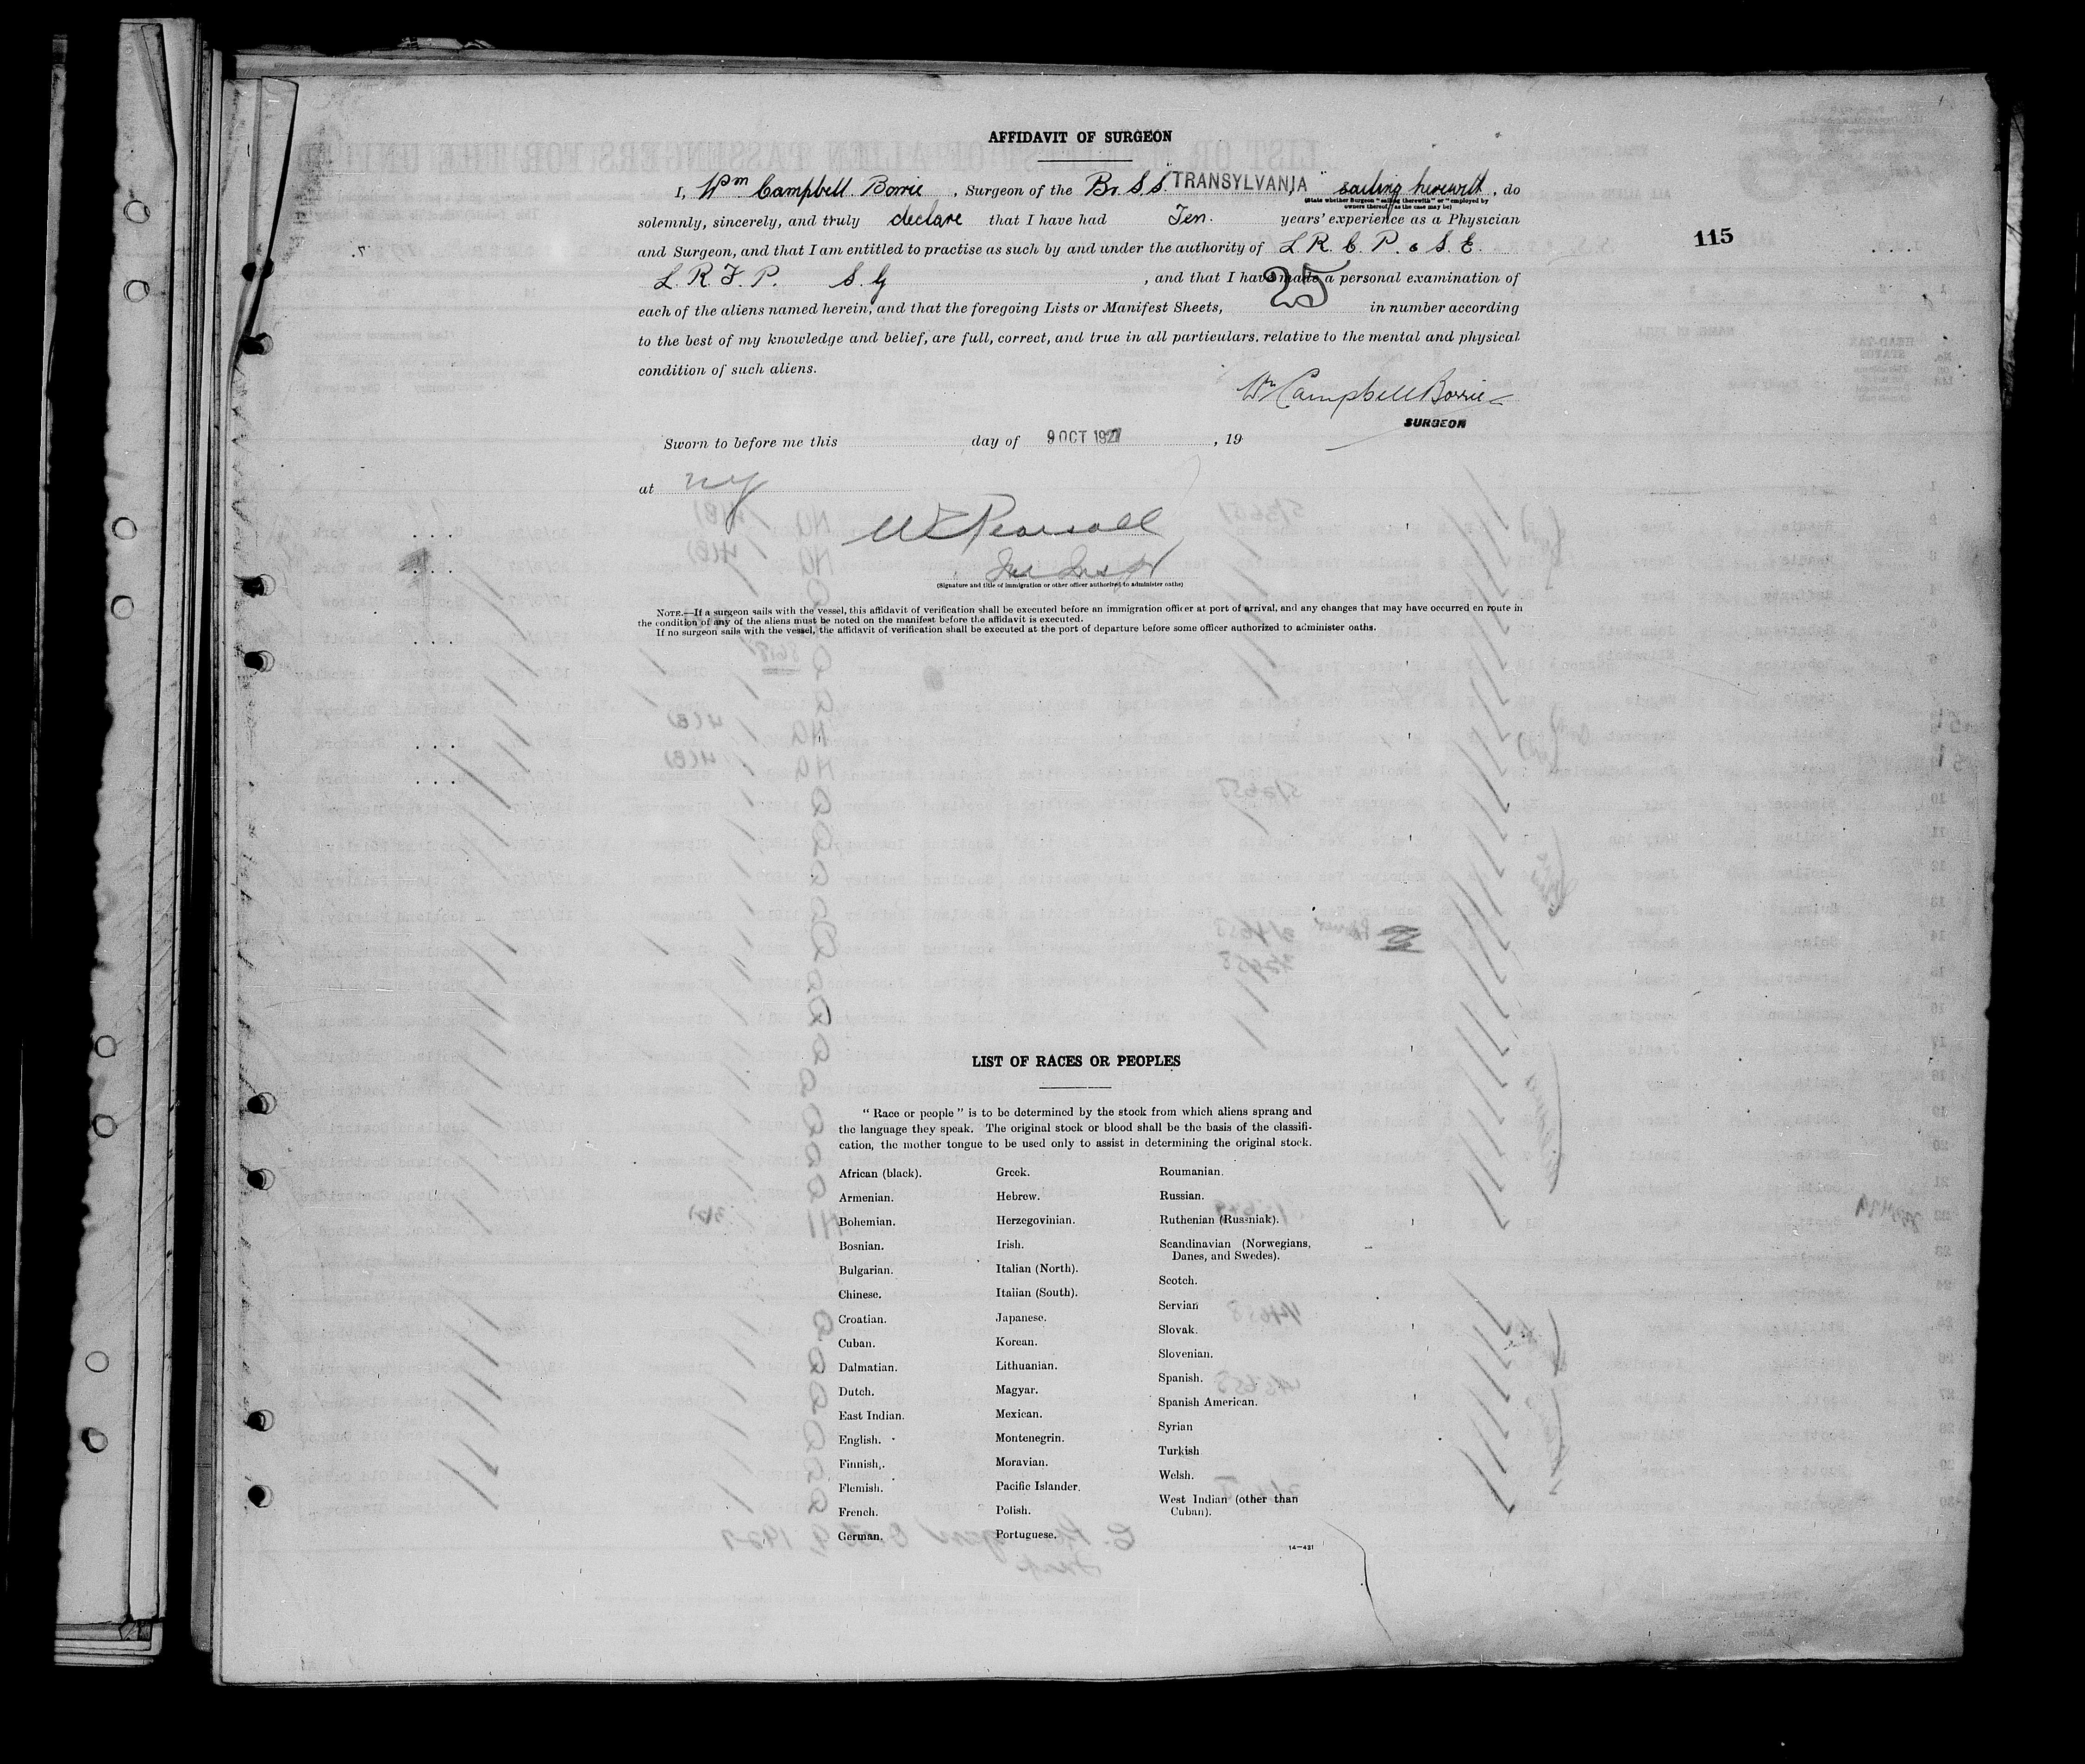 AFFIDAVIT OF SURGEON
I, Wm Campbell Borrie, Surgeon of the Br. S.S. "TRANSYLVANIA" sailing herewith, do
(State whether Surgeon "sailing therewith" or "employed by
owners thereof," as the case may be)
solemnly, sincerely, and truly declare that I have had Ten. years' experience as a Physician
115
and Surgeon, and that I am entitled to practise as such by and under the authority of L. R. C. P. & S. E.
L. R. F. P. S. G, and that I have made a personal examination of
each of the aliens named herein, and that the foregoing Lists or Manifest Sheets, 25 in number according
to the best of my knowledge and belief, are full, correct, and true in all particulars, relative to the mental and physical
condition of such aliens.
Wm Campbell Borrie
SURGEON
Sworn to before me this day of 9 OCT 1927, 19
at NY
(Signature and title of immigration or other officer authorized to administer oaths)
NOTE.—If a surgeon sails with the vessel, this affidavit of verification shall be executed before an immigration officer at port of arrival, and any changes that may have occurred en route in
the condition of any of the aliens must be noted on the manifest before the affidavit is executed.
If no surgeon sails with the vessel, the affidavit of verification shall be executed at the port of departure before some officer authorized to administer oaths.
LIST OF RACES OR PEOPLES
"Race or people" is to be determined by the stock from which aliens sprang and
the language they speak. The original stock or blood shall be the basis of the classifi-
cation, the mother tongue to be used only to assist in determining the original stock.
African (black).
Armenian.
Bohemian.
Bosnian.
Bulgarian.
Chinese.
Croatian.
Cuban.
Dalmatian.
Dutch.
East Indian.
English.
Finnish.
Flemish.
French.
German.
Greek.
Hebrew.
Herzegovinian.
Irish.
Italian (North).
Italian (South).
Japanese.
Korean.
Lithuanian.
Magyar.
Mexican.
Montenegrin.
Moravian.
Pacific Islander.
Polish.
Portuguese.
Roumanian.
Russian.
Ruthenian (Russniak).
Scandinavian (Norwegians,
Danes, and Swedes).
Scotch.
Servian
Slovak.
Slovenian.
Spanish.
Spanish American.
Syrian
Turkish
Welsh.
West Indian (other than
Cuban).
14—431